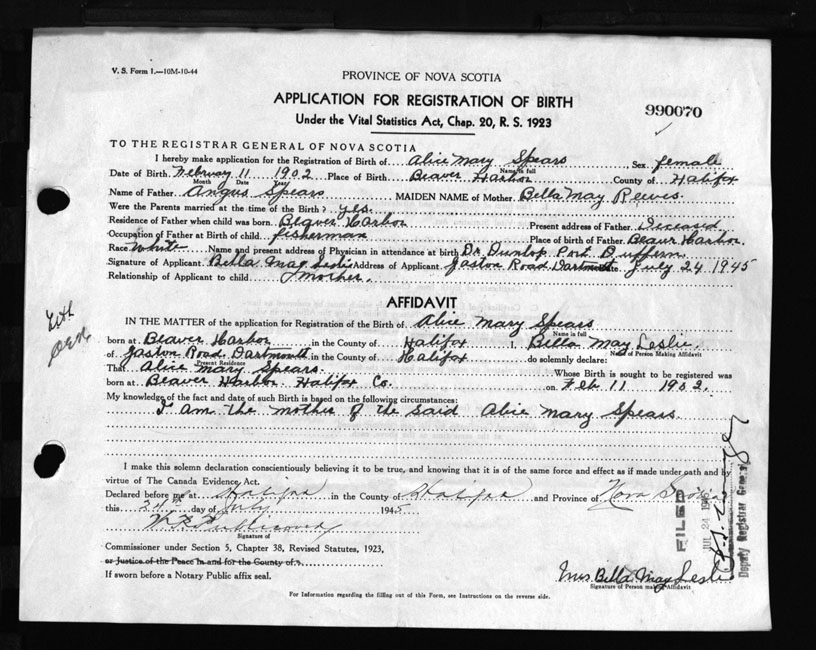 V. S. Form 1.—10M-10-44
PROVINCE OF NOVA SCOTIA
APPLICATION FOR REGISTRATION OF BIRTH
990070
Under the Vital Statistics Act, Chap. 20, R. S. 1923
TO THE REGISTRAR GENERAL OF NOVA SCOTIA
I hereby make application for the Registration of Birth of Alice Mary Spears Sex female
Name in full
Date of Birth February 11 1902 Place of Birth Beaver Harbor County of Halifax
Month Date Year
Name of Father Angus Spears MAIDEN NAME of Mother Bella May Rewis
Were the Parents married at the time of the Birth? yes.
Residence of Father when child was born Beaver Harbor Present address of Father Deceased
Occupation of Father at Birth of child fisherman Place of birth of Father Beaver Harbor.
Race White Name and present address of Physician in attendance at birth Dr. Dunlop Port Dufferin
Signature of Applicant Bella May Leslie Address of Applicant Gaston Road Dartmouth Date July 24 1945
Relationship of Applicant to child Mother.
AFFIDAVIT
IN THE MATTER of the application for Registration of the Birth of Alice Mary Spears
Name in full
born at Beaver Harbor in the County of Halifax I, Bella May Leslie
Name of Person Making Affidavit
of Gaston Road Dartmouth in the County of Halifax do solemnly declare:
Present Residence
That Alice Mary Spears. Whose Birth is sought to be registered was
born at Beaver Harbor Halifax Co. on Feb 11 1902.
My knowledge of the fact and date of such Birth is based on the following circumstances:
I am the mother of the said Alice Mary Spears
I make this solemn declaration conscientiously believing it to be true, and knowing that it is of the same force and effect as if made under oath and by
virtue of The Canada Evidence Act.
Declared before me at Halifax in the County of Halifax and Province of Nova Scotia
this 24th day of July 1945
Signature of
Commissioner under Section 5, Chapter 38, Revised Statutes, 1923,
or Justice of the Peace in and for the County of
If sworn before a Notary Public affix seal.
FILED
JUL 24 1945
Deputy Registrar General
Mrs. Bella May Leslie
Signature of Person making Affidavit
For Information regarding the filling out of this Form, see Instructions on the reverse side.